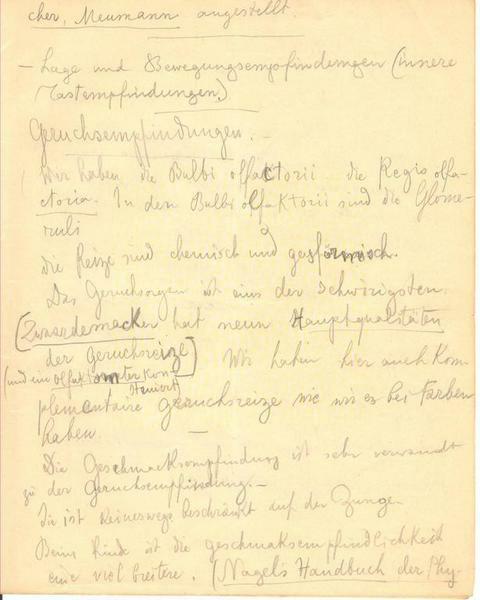 cher, Meumann angestellt.
– Lage und Bewegungsempfindungen (innere
Tastempfindungen.)
Geruchsempfindungen. –
Wir haben die Bulbi olfaktorii die Regio olfa-
ctoria. In den Bulbi olfaktorii sind die Glome-
ruli
die Reize sind chemisch und gasförmisch.
Das Geruchsorgan ist eins der schwirigsten.
[Zwaardemacker hat neun Hauptqualitäten
der Geruchsreize] Wir habin hier auch Kom
(und ein Olfaktometer kon-
struiert)
plementaire Geruchsreize wie wir es bei Farben
haben. –
Die Geschmacksempfindung ist sehr verwandt
zu der Geruchsempfindung. –
Sie ist keineswegs beschränkt auf der Zunge.
Beim Kinde ist die geschmaksempfindlichkeit
eine viel breitere. (Nagel's Handbuch der Phy-